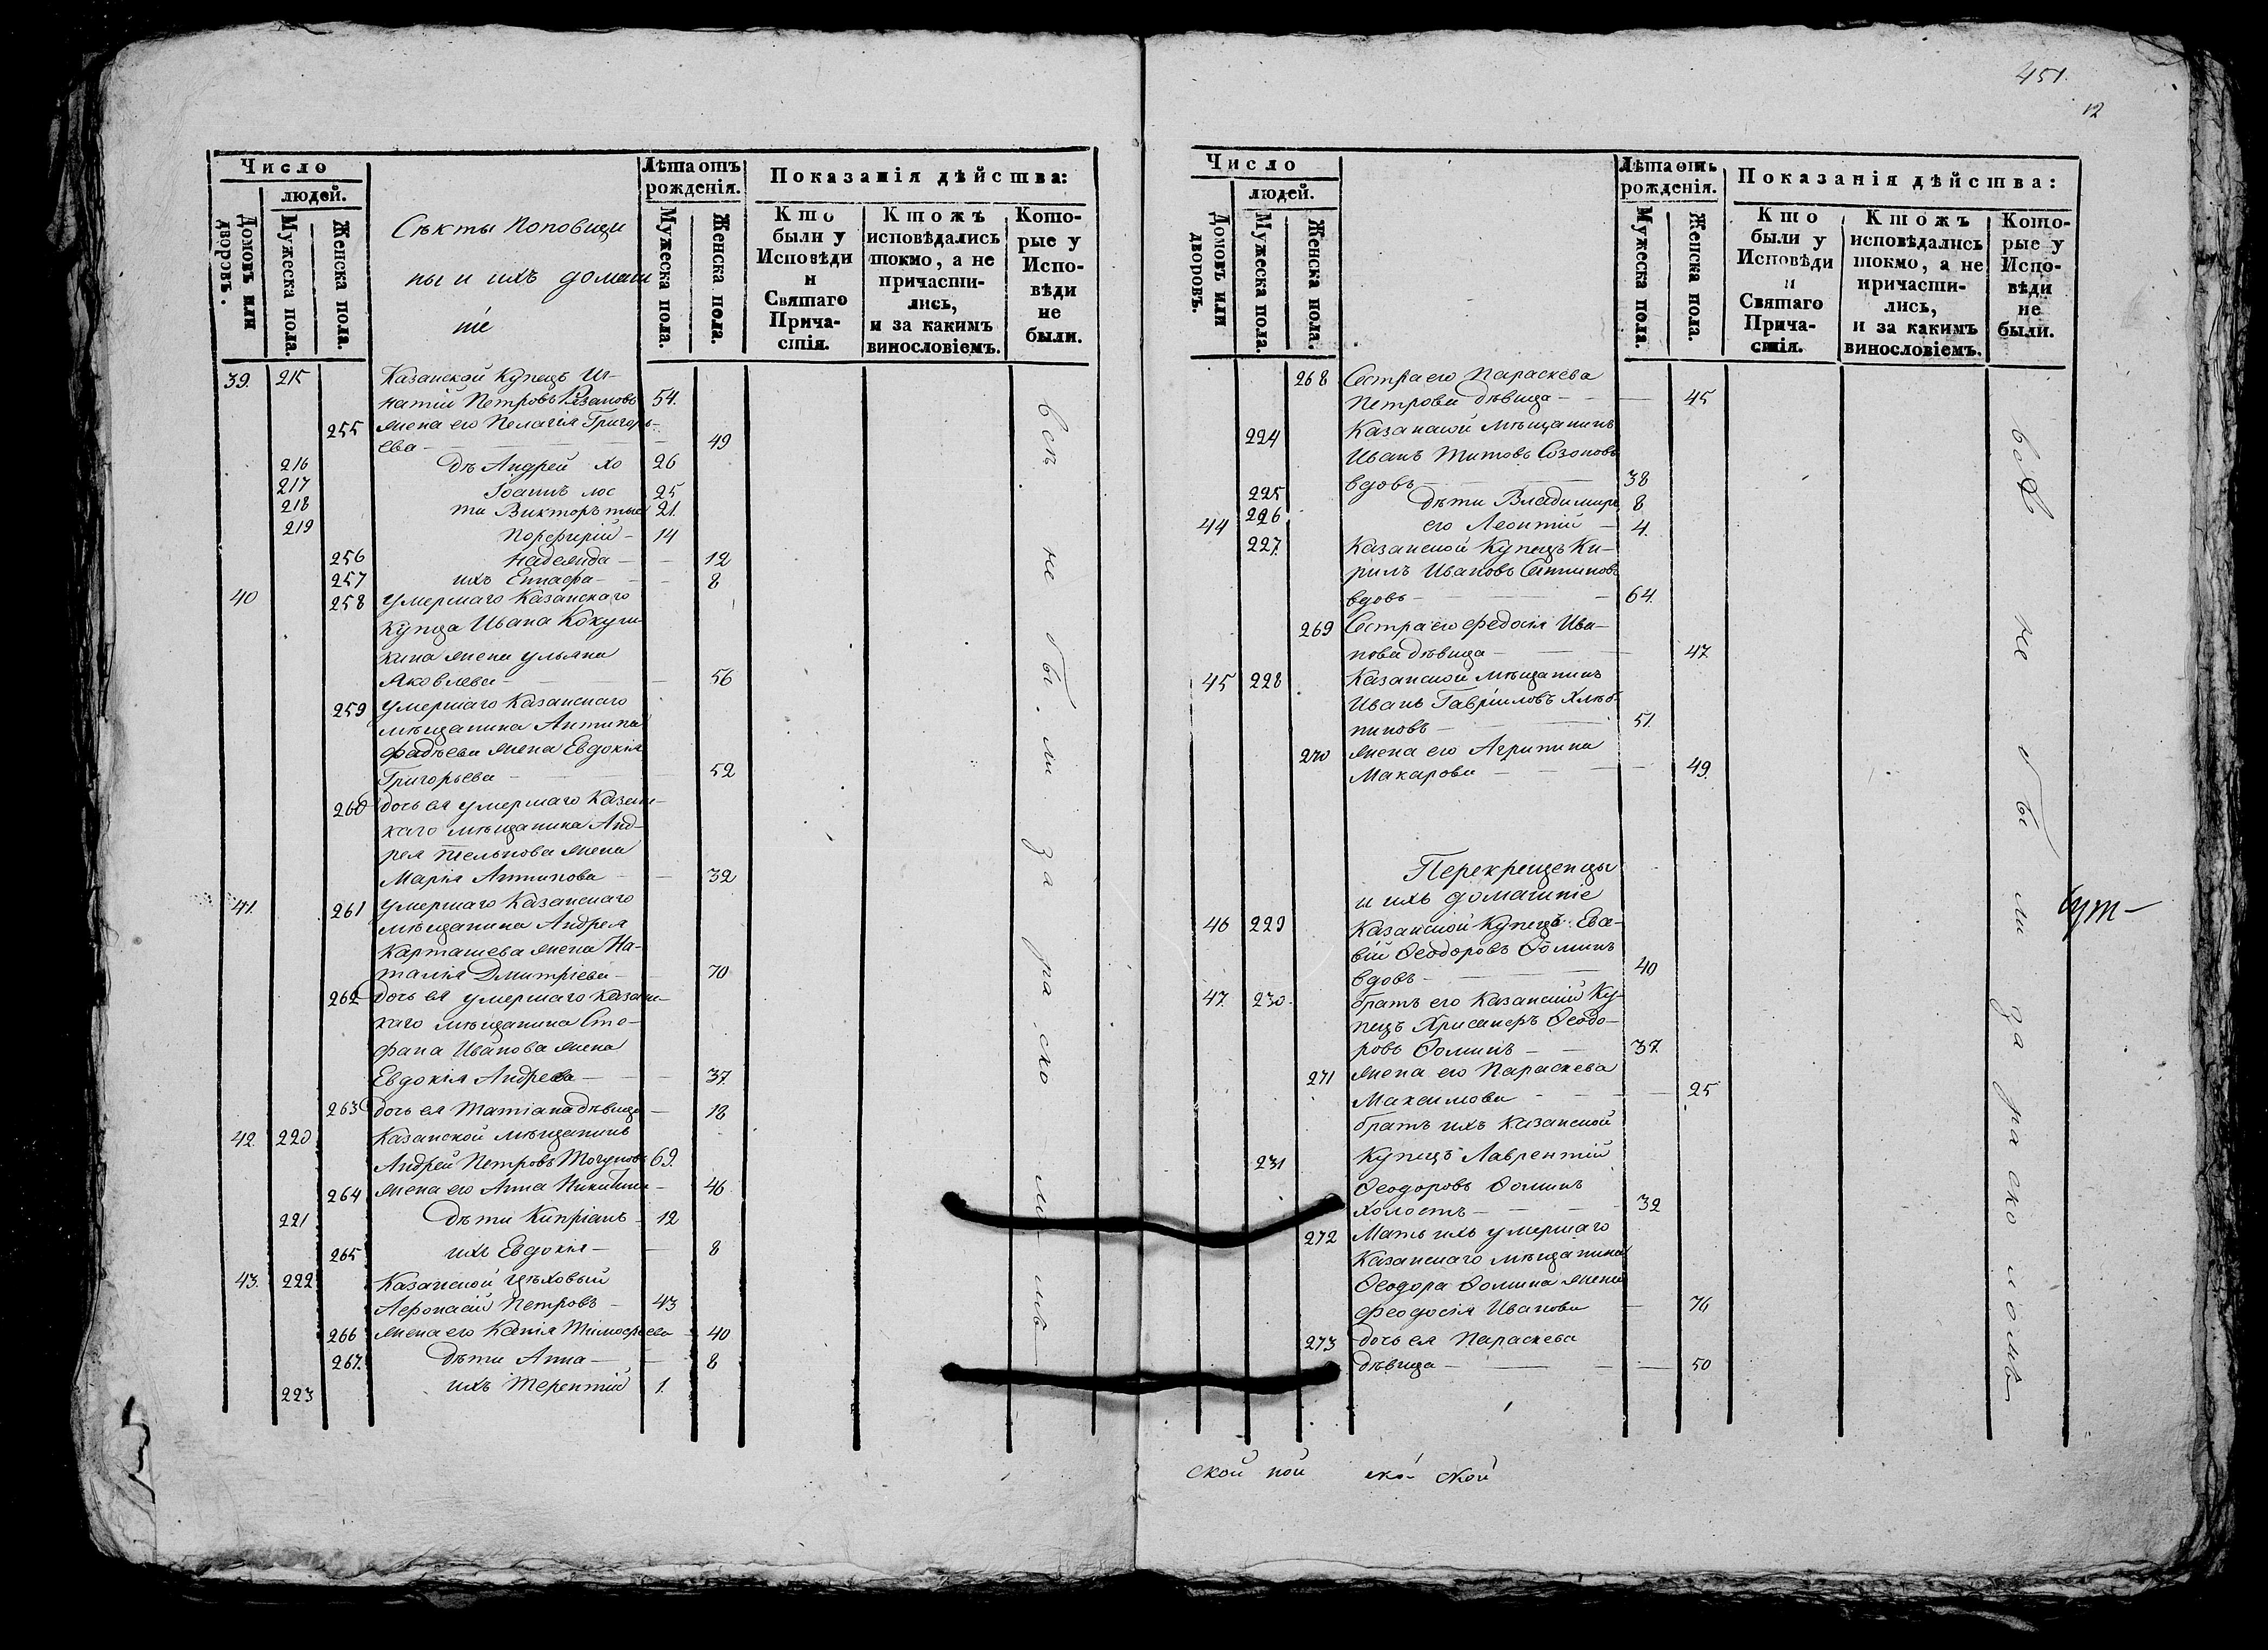 451.
12
Число
людей.
Домовъ или дворовъ.
Мужеска пола.
Женска пола.
Секты поповщи
ны и ихъ домаш
ніе
Лѣта отъ рожденія.
Мужеска пола.
Женска пола.
Показанія дѣйства:
Кто были у Исповѣди и Святаго Причастія.
Ктожъ исповѣдались токмо, а не причастились, и за какимъ винословіемъ.
Которые у Исповѣди не были.
39. 215 Казанской Купецъ Иг-
натій Петровъ Рязановъ 54.
255 жена его Пелагія Григорь-
ева 49
216 дѣ Андрей хо 26
217 Іоаннъ лос 25
218 ти Викторъ тые 21.
219 Порфирій 14
256 Надежда 12
257 ихъ Еппафа 8
40 258 Умершаго Казанскаго
Купца Ивана Кокуш
кина жена Ульяна
Яковлева 56
259 Умершаго Казанскаго
мѣщанина Антипа
Фадѣева жена Евдокія
Григорьева 52
260 дочь ея умершаго Казан-
скаго мѣщанина Анд-
рея жена
Марія Антипова 32
41. 261 Умершаго Казанскаго
мѣщанина Андрея
Карташева жена На-
талія Дмитріева 70
262 дочь ея умершаго Казан-
скаго мѣщанина Сте-
фана Иванова жена
Евдокія Андреева 37.
263 дочь ея Татіана дѣвица 18
42. 220 Казанской мѣщанинъ
Андрей Петровъ 69.
264 жена его Анна Никитина 46
221 дѣти Кипріанъ 12
265 ихъ Евдокія 8
43. 222 Казанской цѣховый
Афонасій Петровъ 43
266 жена его Ксенія Тимофѣева 40
267. дѣти Анна 8
223 ихъ Терентій 1.
всѣ не были за расколомъ
Число
людей.
Домовъ или дворовъ.
Мужеска пола.
Женска пола.
Лѣта отъ рожденія.
Мужеска пола.
Женска пола.
Показанія дѣйства:
Кто были у Исповѣди и Святаго Причастія.
Ктожъ исповѣдались токмо, а не причастились, и за какимъ винословіемъ.
Которые у Исповѣди не были.
268 Сестра его Параскева
Петрова дѣвица 45
224 Казанской мѣщанинъ
Иванъ Титовъ Созоновъ
вдовъ 38
225 дѣти Владимиръ 8
226 его Леонтій 4.
44 227. Казанской Купецъ Ки-
рилъ Ивановъ
вдовъ 64.
269 Сестра его Федосія Ива-
нова дѣвица 47
45 228 Казанской мѣщанинъ
Иванъ Гавриловъ Хлѣб-
никовъ 51.
270 жена его Агрипина
Макарова 49.
Перекрещенцы
и ихъ домашніе
46 229 Казанской Купецъ Ева-
вій Ѳеодоровъ Ѳоминъ
вдовъ 40
47. 230. братъ его Казанскій Ку-
пецъ Хрисанфъ Ѳеодо-
ровъ Ѳоминъ 37.
271 жена его Параскева
Максимова 25
братъ ихъ Казанской
231 Купецъ Лаврентій
Ѳеодоровъ Ѳоминъ
холостъ 32
272 Мать ихъ умершаго
Казанскаго мѣщанина
Ѳеодора Ѳомина жена
Феодосія Иванова 76
273 дочь ея Параскева
дѣвица 50
всѣ не были за расколомъ
ской ной ско- ской